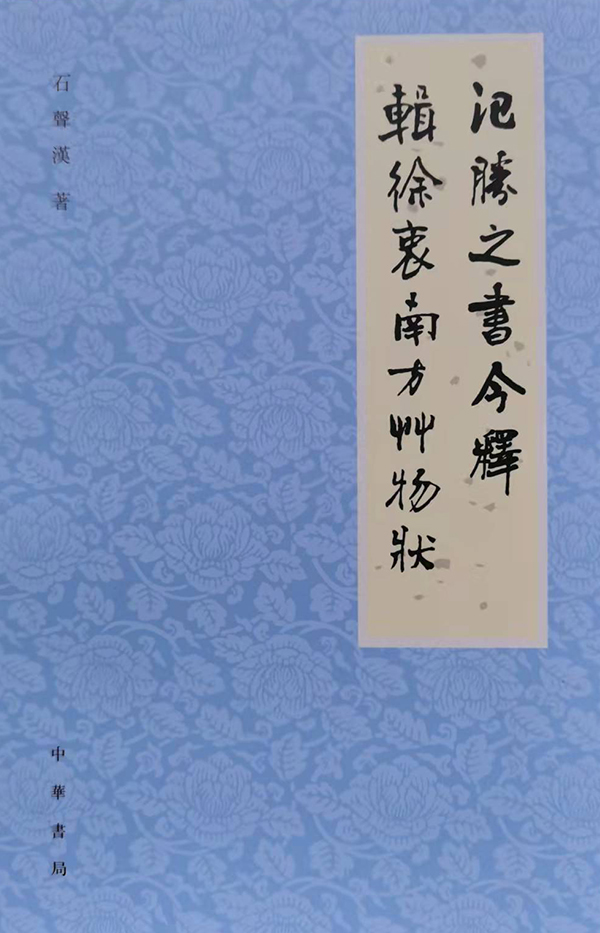 氾勝之書今釋
輯徐衷南方艸物狀
石聲漢 著
中華書局